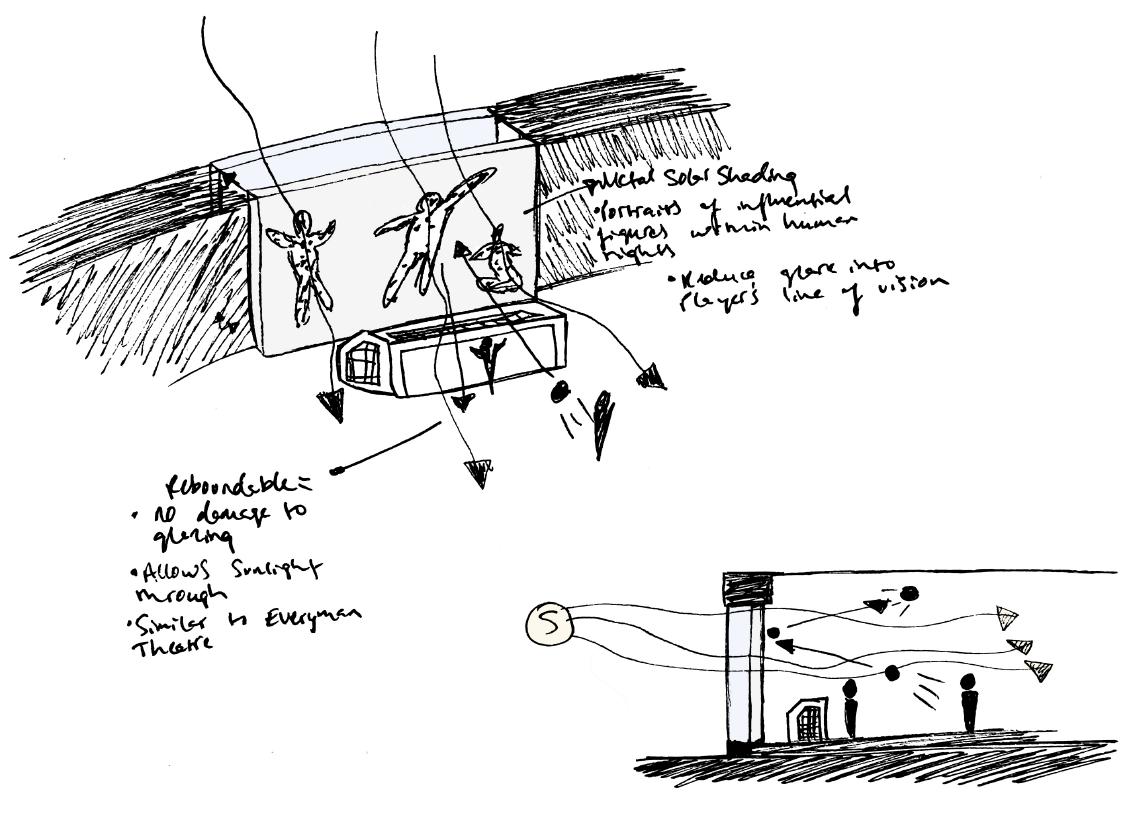 Metal Solar Shading
• Portraits of influential
figures within human
rights
• Reduce glare into
Players line of vision
Reboundable =
• no damage to
glazing
• Allows Sunlight
through
• Similar to Everyman
Theatre
S